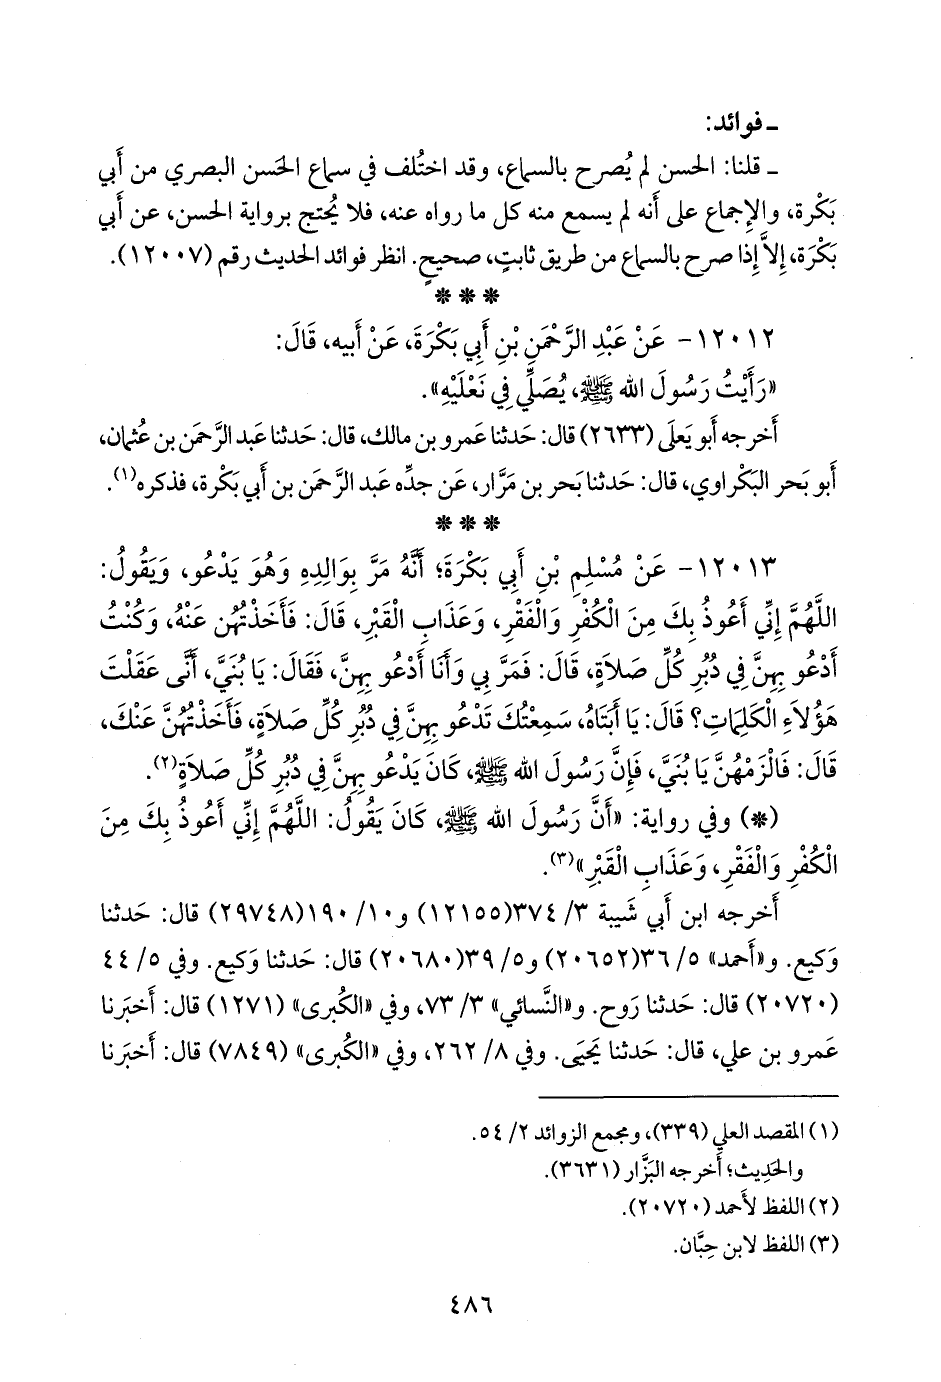 ـ فوائد:
ـ قلنا: الحسن لم يُصرح بالسماع، وقد اختُلف في سماع الحَسن البصري من أَبي
بَكْرة، والإِجماع على أَنه لم يسمع منه كل ما رواه عنه، فلا يُحتج برواية الحسن، عن أَبي
بَكْرَة، إِلاَّ إِذا صرح بالسماع من طريق ثابتٍ، صحيحٍ. انظر فوائد الحديث رقم (١٢٠٠٧).
* * *
١٢٠١٢- عَنْ عَبْدِ الرَّحْمَنِ بْنِ أَبِي بَكْرَةَ، عَنْ أَبيه، قَالَ:
«رَأَيْتُ رَسُولَ الله ﷺ، يُصَلِّي فِي نَعْلَيْهِ».
أَخرجه أَبو يَعلَى (٢٦٣٣) قال: حَدثنا عَمرو بن مالك، قال: حَدثنا عَبد الرَّحمَن بن عُثمان،
أَبو بَحر البَكْراوي، قال: حَدثنا بَحر بن مَرَّار، عَن جدِّه عَبد الرَّحمَن بن أَبي بَكْرة، فذكره(١).
* * *
١٢٠١٣- عَنْ مُسْلِمِ بْنِ أَبِي بَكْرَةَ؛ أَنَّهُ مَرَّ بِوَالِدِهِ وَهُوَ يَدْعُو، وَيَقُولُ:
اللَّهُمَّ إِنِّي أَعُوذُ بِكَ مِنَ الْكُفْرِ وَالْفَقْرِ، وَعَذَابِ الْقَبْرِ، قَالَ: فَأَخَذْتُهُنَّ عَنْهُ، وَكُنْتُ
أَدْعُو بِهِنَّ فِي دُبُرِ كُلِّ صَلاَةٍ، قَالَ: فَمَرَّ بِي وَأَنَا أَدْعُو بِهِنَّ، فَقَالَ: يَا بُنَيَّ، أَنَّى عَقَلْتَ
هَؤُلاَءِ الْكَلِمَاتِ؟ قَالَ: يَا أَبَتَاهُ، سَمِعْتُكَ تَدْعُو بِهِنَّ فِي دُبُرِ كُلِّ صَلاَةٍ، فَأَخَذْتُهُنَّ عَنْكَ،
قَالَ: فَالْزَمْهُنَّ يَا بُنَيَّ، فَإِنَّ رَسُولَ الله ﷺ، كَانَ يَدْعُو بِهِنَّ فِي دُبُرِ كُلِّ صَلاَةٍ(٢).
(*) وفي رواية: «أَنَّ رَسُولَ الله ﷺ، كَانَ يَقُولُ: اللَّهُمَّ إِنِّي أَعُوذُ بِكَ مِنَ
الْكُفْرِ وَالْفَقْرِ، وَعَذَابِ الْقَبْرِ»(٣).
أَخرجه ابن أَبي شَيبة ٣/ ٣٧٤(١٢١٥٥) و١٠/ ١٩٠(٢٩٧٤٨) قال: حَدثنا
وَكيع. و«أَحمد» ٥/ ٣٦(٢٠٦٥٢) و٥/ ٣٩(٢٠٦٨٠) قال: حَدثنا وَكيع. وفي ٥/ ٤٤
(٢٠٧٢٠) قال: حَدثنا رَوح. و«النَّسائي» ٣/ ٧٣، وفي «الكُبرى» (١٢٧١) قال: أَخبَرنا
عَمرو بن علي، قال: حَدثنا يَحيَى. وفي ٨/ ٢٦٢، وفي «الكُبرى» (٧٨٤٩) قال: أَخبَرنا
(١) المقصد العلي (٣٣٩)، ومجمع الزوائد ٢/ ٥٤.
والحَدِيث؛ أَخرجه البَزَّار (٣٦٣١).
(٢) اللفظ لأَحمد (٢٠٧٢٠).
(٣) اللفظ لابن حِبَّان.
٤٨٦